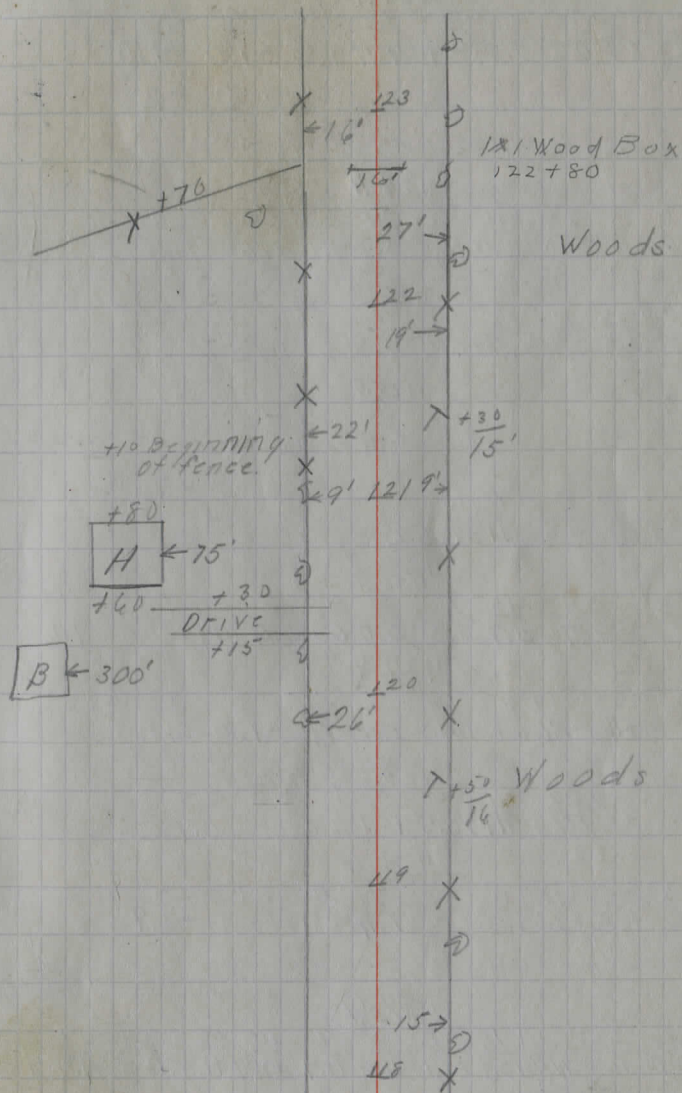 123
16'
1x1 Wood Box
16'
122+80
+70
27'
Woods
122
19'
22'
+30
15'
+10 Beginning
of fence.
9'
121
9'
+80
H
75'
+60
+30
Drive
+15
B
300'
120
26'
T +50 Woods
16
119
15
118